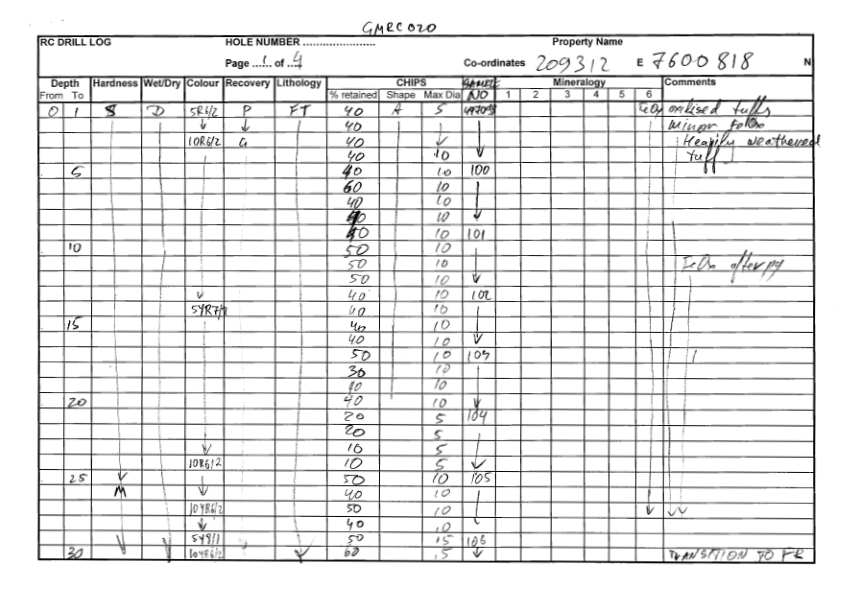 GMRC020
RC DRILL LOG HOLE NUMBER ........................ Property Name
Page ...1.. of .4 Co-ordinates 209312 E 7600818 N
Depth Hardness Wet/Dry Colour Recovery Lithology CHIPS SAMPLE Mineralogy Comments
From To % retained Shape Max Dia NO 1 2 3 4 5 6
0 1 S D 5R6/2 P FT 40 A 5 FeOx oxidised tuffs
40 minor FeOx
10R6/2 G 40 Heavily weathered
40 10 tuff
5 40 10 100
60 10
40 10
40 10
40 10 101
10 50 10
50 10 FeOx after py
50 10
40 10 102
5YR7/2 40 10
15 40 10
40 10
50 10 103
30 10
10 10
20 40 10
20 5 104
20 5
10 5
10R6/2 10 5
25 50 10 105
M 40 10
10YR6/2 50 10
40 10
5Y9/1 50 15 106
30 10YR6/2 60 5 TRANSITION TO FR